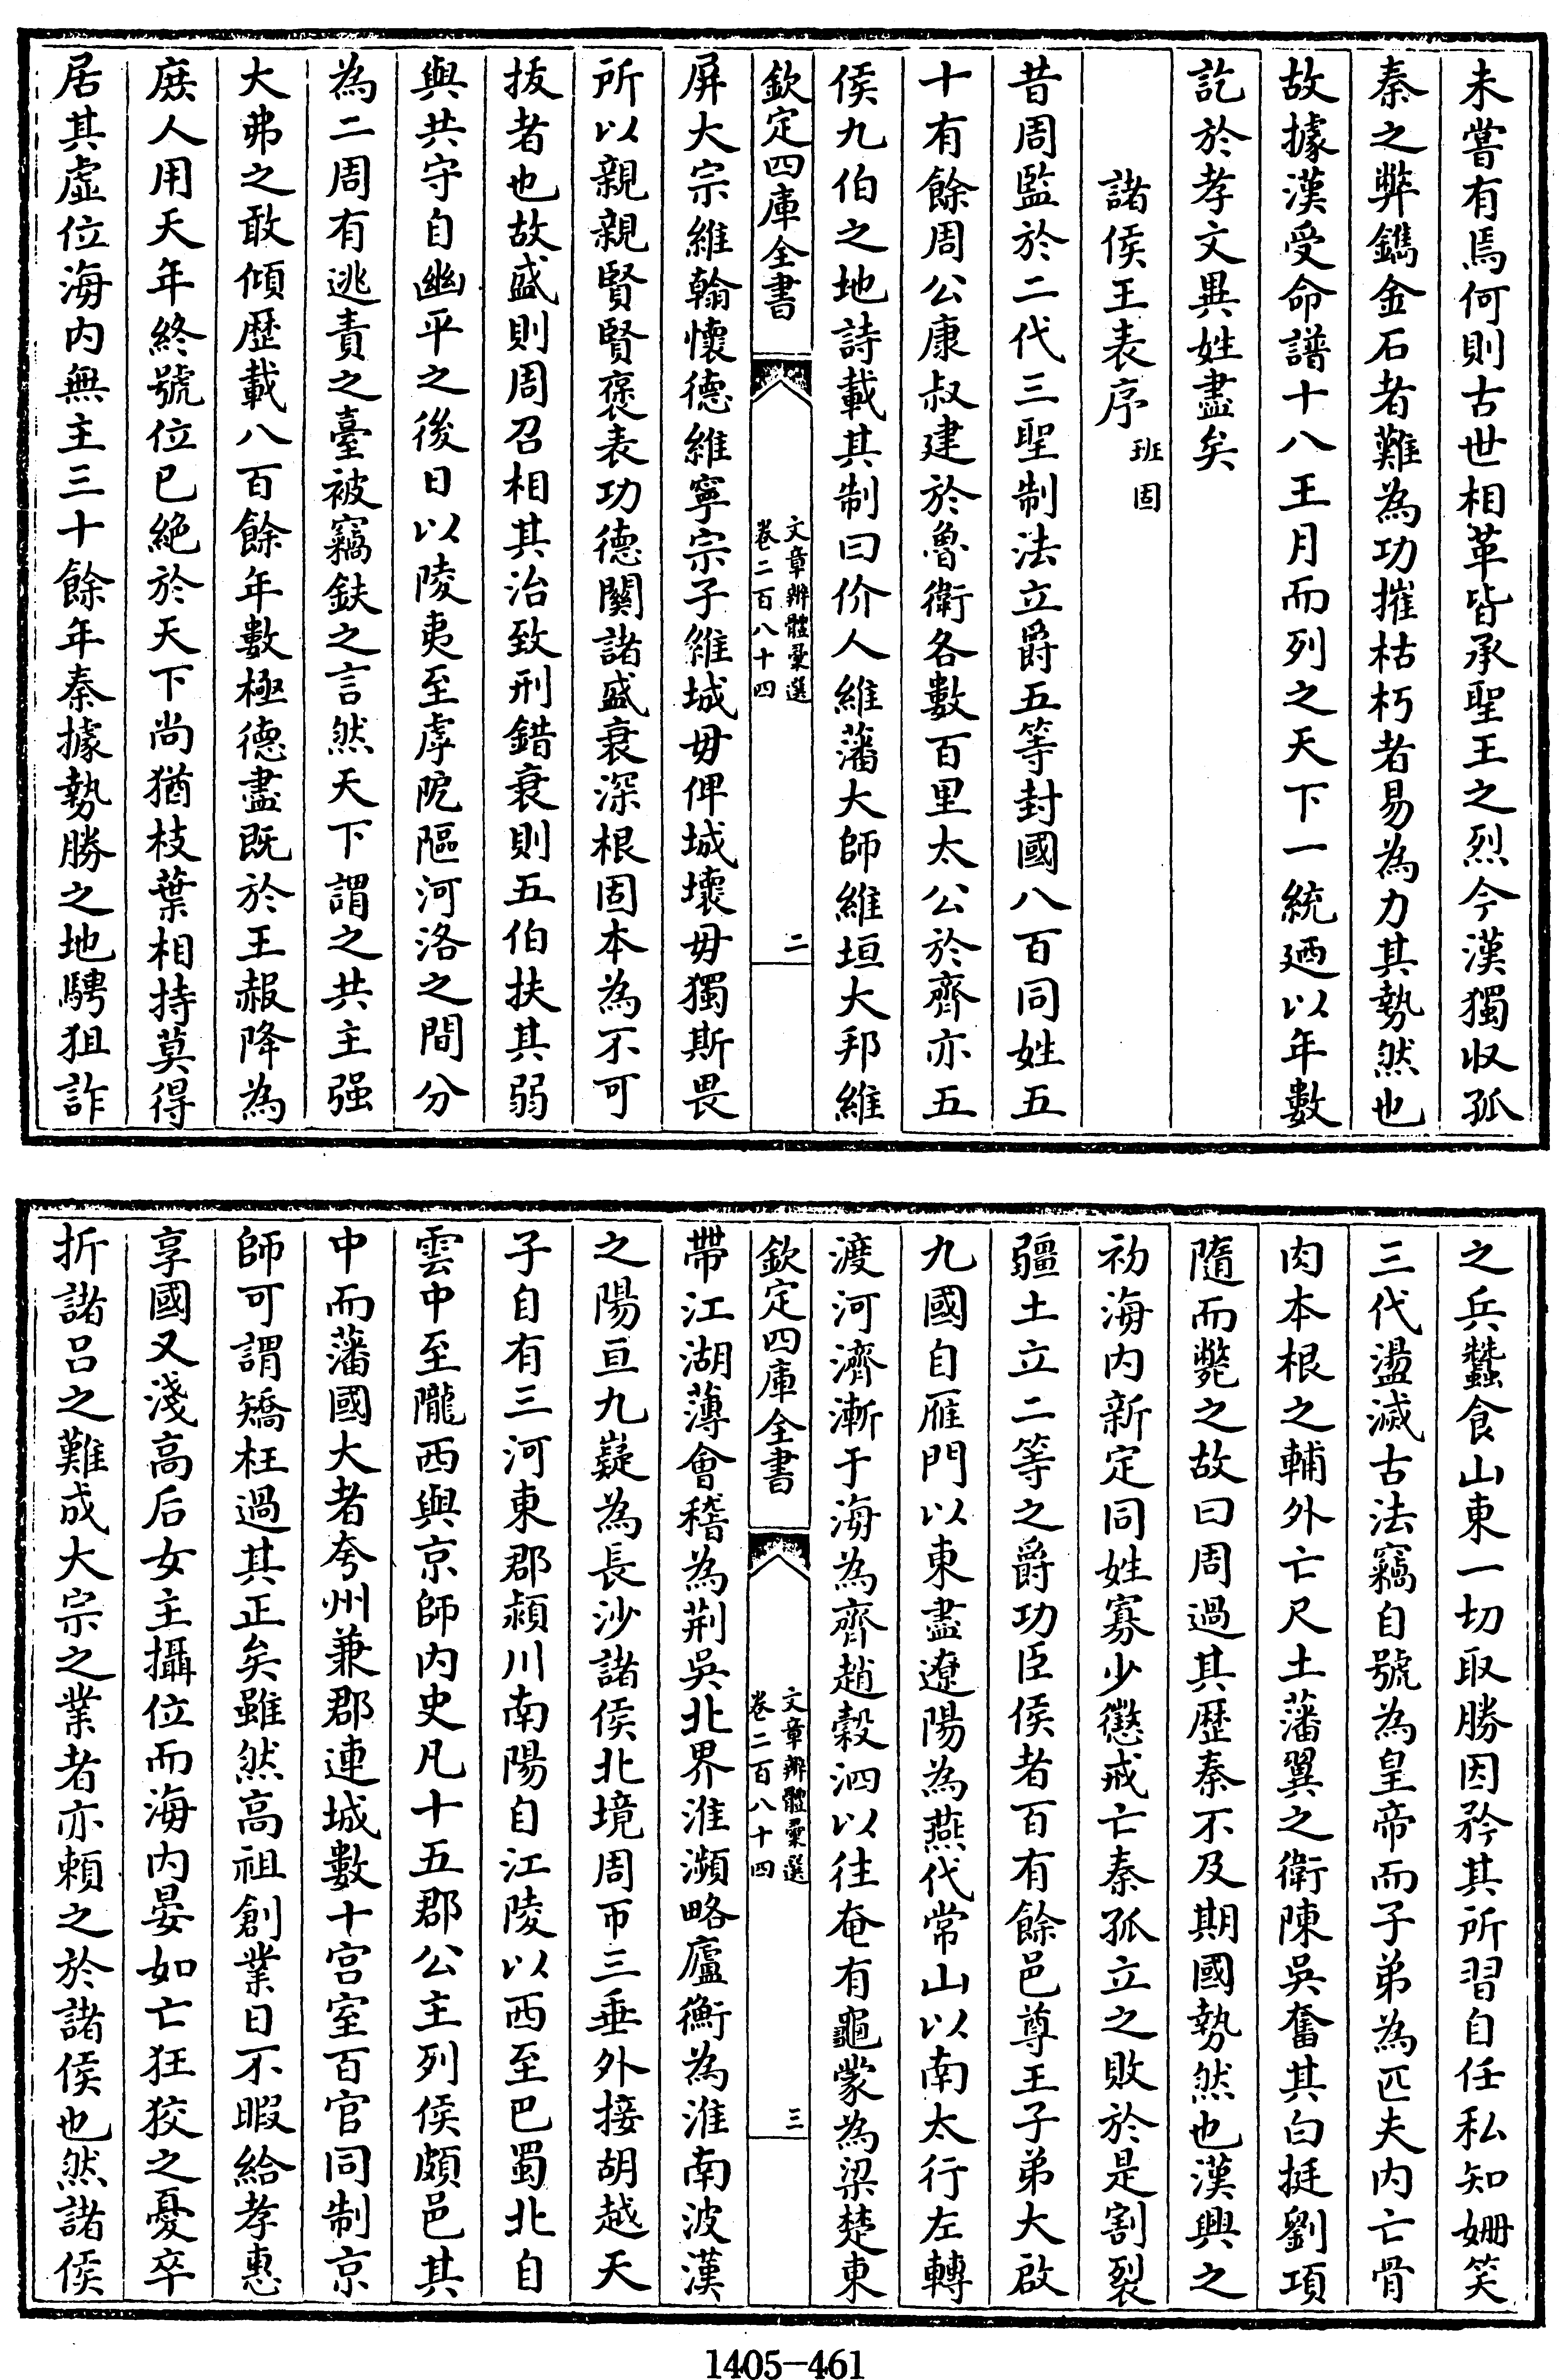 未嘗有焉何則古世相革皆承聖王之烈今漢獨收孤
秦之弊鐫金石者難為功摧枯朽者易為力其勢然也
故據漢受命譜十八王月而列之天下一統廼以年數
訖於孝文異姓盡矣
諸侯王表序 班固
昔周監於二代三聖制法立爵五等封國八百同姓五
十有餘周公康叔建於魯衛各數百里太公於齊亦五
侯九伯之地詩載其制曰价人維藩大師維垣大邦維
欽定四庫全書
文章辨體彙選
卷二百八十四
二
屏大宗維翰懷德維寧宗子維城毋俾城壞毋獨斯畏
所以親親賢賢褒表功德關諸盛衰深根固本為不可
拔者也故盛則周召相其治致刑錯衰則五伯扶其弱
與共守自幽平之後日以陵夷至虖阸䧢河洛之間分
為二周有逃責之臺被竊鈇之言然天下謂之共主强
大弗之敢傾歷載八百餘年數極德盡既於王赧降為
庶人用天年終號位已絶於天下尚猶枝葉相持莫得
居其虛位海内無主三十餘年秦據勢勝之地騁狙詐
之兵蠶食山東一切取勝因矜其所習自任私知姍笑
三代盪滅古法竊自號為皇帝而子弟為匹夫内亡骨
肉本根之輔外亡尺土藩翼之衛陳吳奮其白挺劉項
隨而斃之故曰周過其歷秦不及期國勢然也漢興之
初海内新定同姓寡少懲戒亡秦孤立之敗於是割裂
疆土立二等之爵功臣侯者百有餘邑尊王子弟大啟
九國自雁門以東盡遼陽為燕代常山以南太行左轉
渡河濟漸于海為齊趙穀泗以往奄有龜蒙為梁楚東
欽定四庫全書
文章辨體彙選
卷二百八十四
三
帶江湖薄會稽為荆吳北界淮瀕略廬衡為淮南波漢
之陽亘九嶷為長沙諸侯北境周帀三垂外接胡越天
子自有三河東郡潁川南陽自江陵以西至巴蜀北自
雲中至隴西與京師内史凡十五郡公主列侯頗邑其
中而藩國大者夸州兼郡連城數十宫室百官同制京
師可謂矯枉過其正矣雖然高祖創業日不暇給孝惠
享國又淺高后女主攝位而海内晏如亡狂狡之憂卒
折諸吕之難成大宗之業者亦賴之於諸侯也然諸侯
1405-461